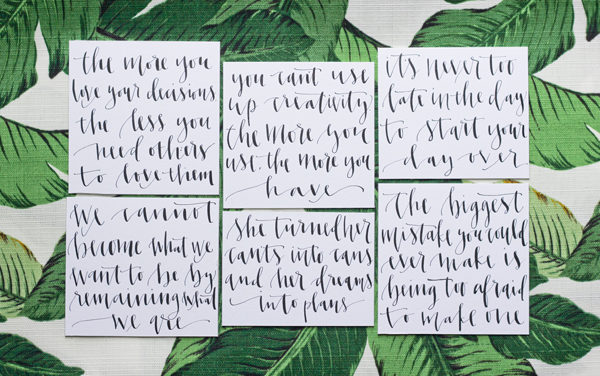 the more you
love your decisions
the less you
need others
to love them
you can't use
up creativity
the more you
use, the more you
have
it's never too
late in the day
to start your
day over
we cannot
become what we
want to be by
remaining what
we are
she turned her
cants into cans
and her dreams
into plans
the biggest
mistake you could
ever make is
being too afraid
to make one